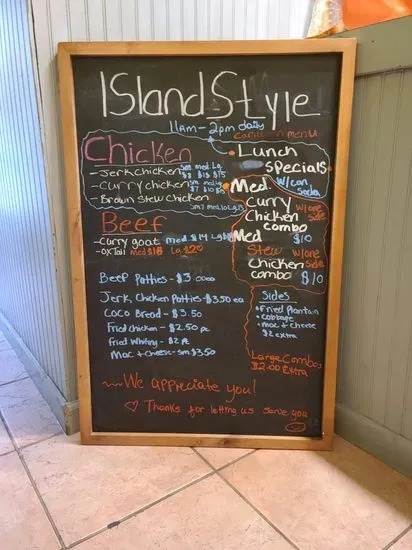 ISland Style
11am - 2pm daily
caribbean menu
Chicken
- Jerk chicken Sm med. Lg. $8 $13 $15
- Curry chicken Sm med. Lg.
- Brown Stew Chicken
Beef
- Curry goat med $14
- oxTail Lg
Beef Patties - $3.00ea
Jerk Chicken Patties - $3.50 ea
Coco Bread - $3.50
fried chicken - $2.50 pc
fried whiting - $2 pc
Mac + cheese - sm $3.50
Lunch
Specials
w/can Soda
Med
Curry w/one
Chicken side
Combo
Med $10
Stew w/one
Chicken side
combo $10
Sides
• Fried Plantain
• Cabbage
• Mac + cheese
$2 extra
Large Combos
$2.00 Extra
We appreciate you!
Thanks for letting us serve you